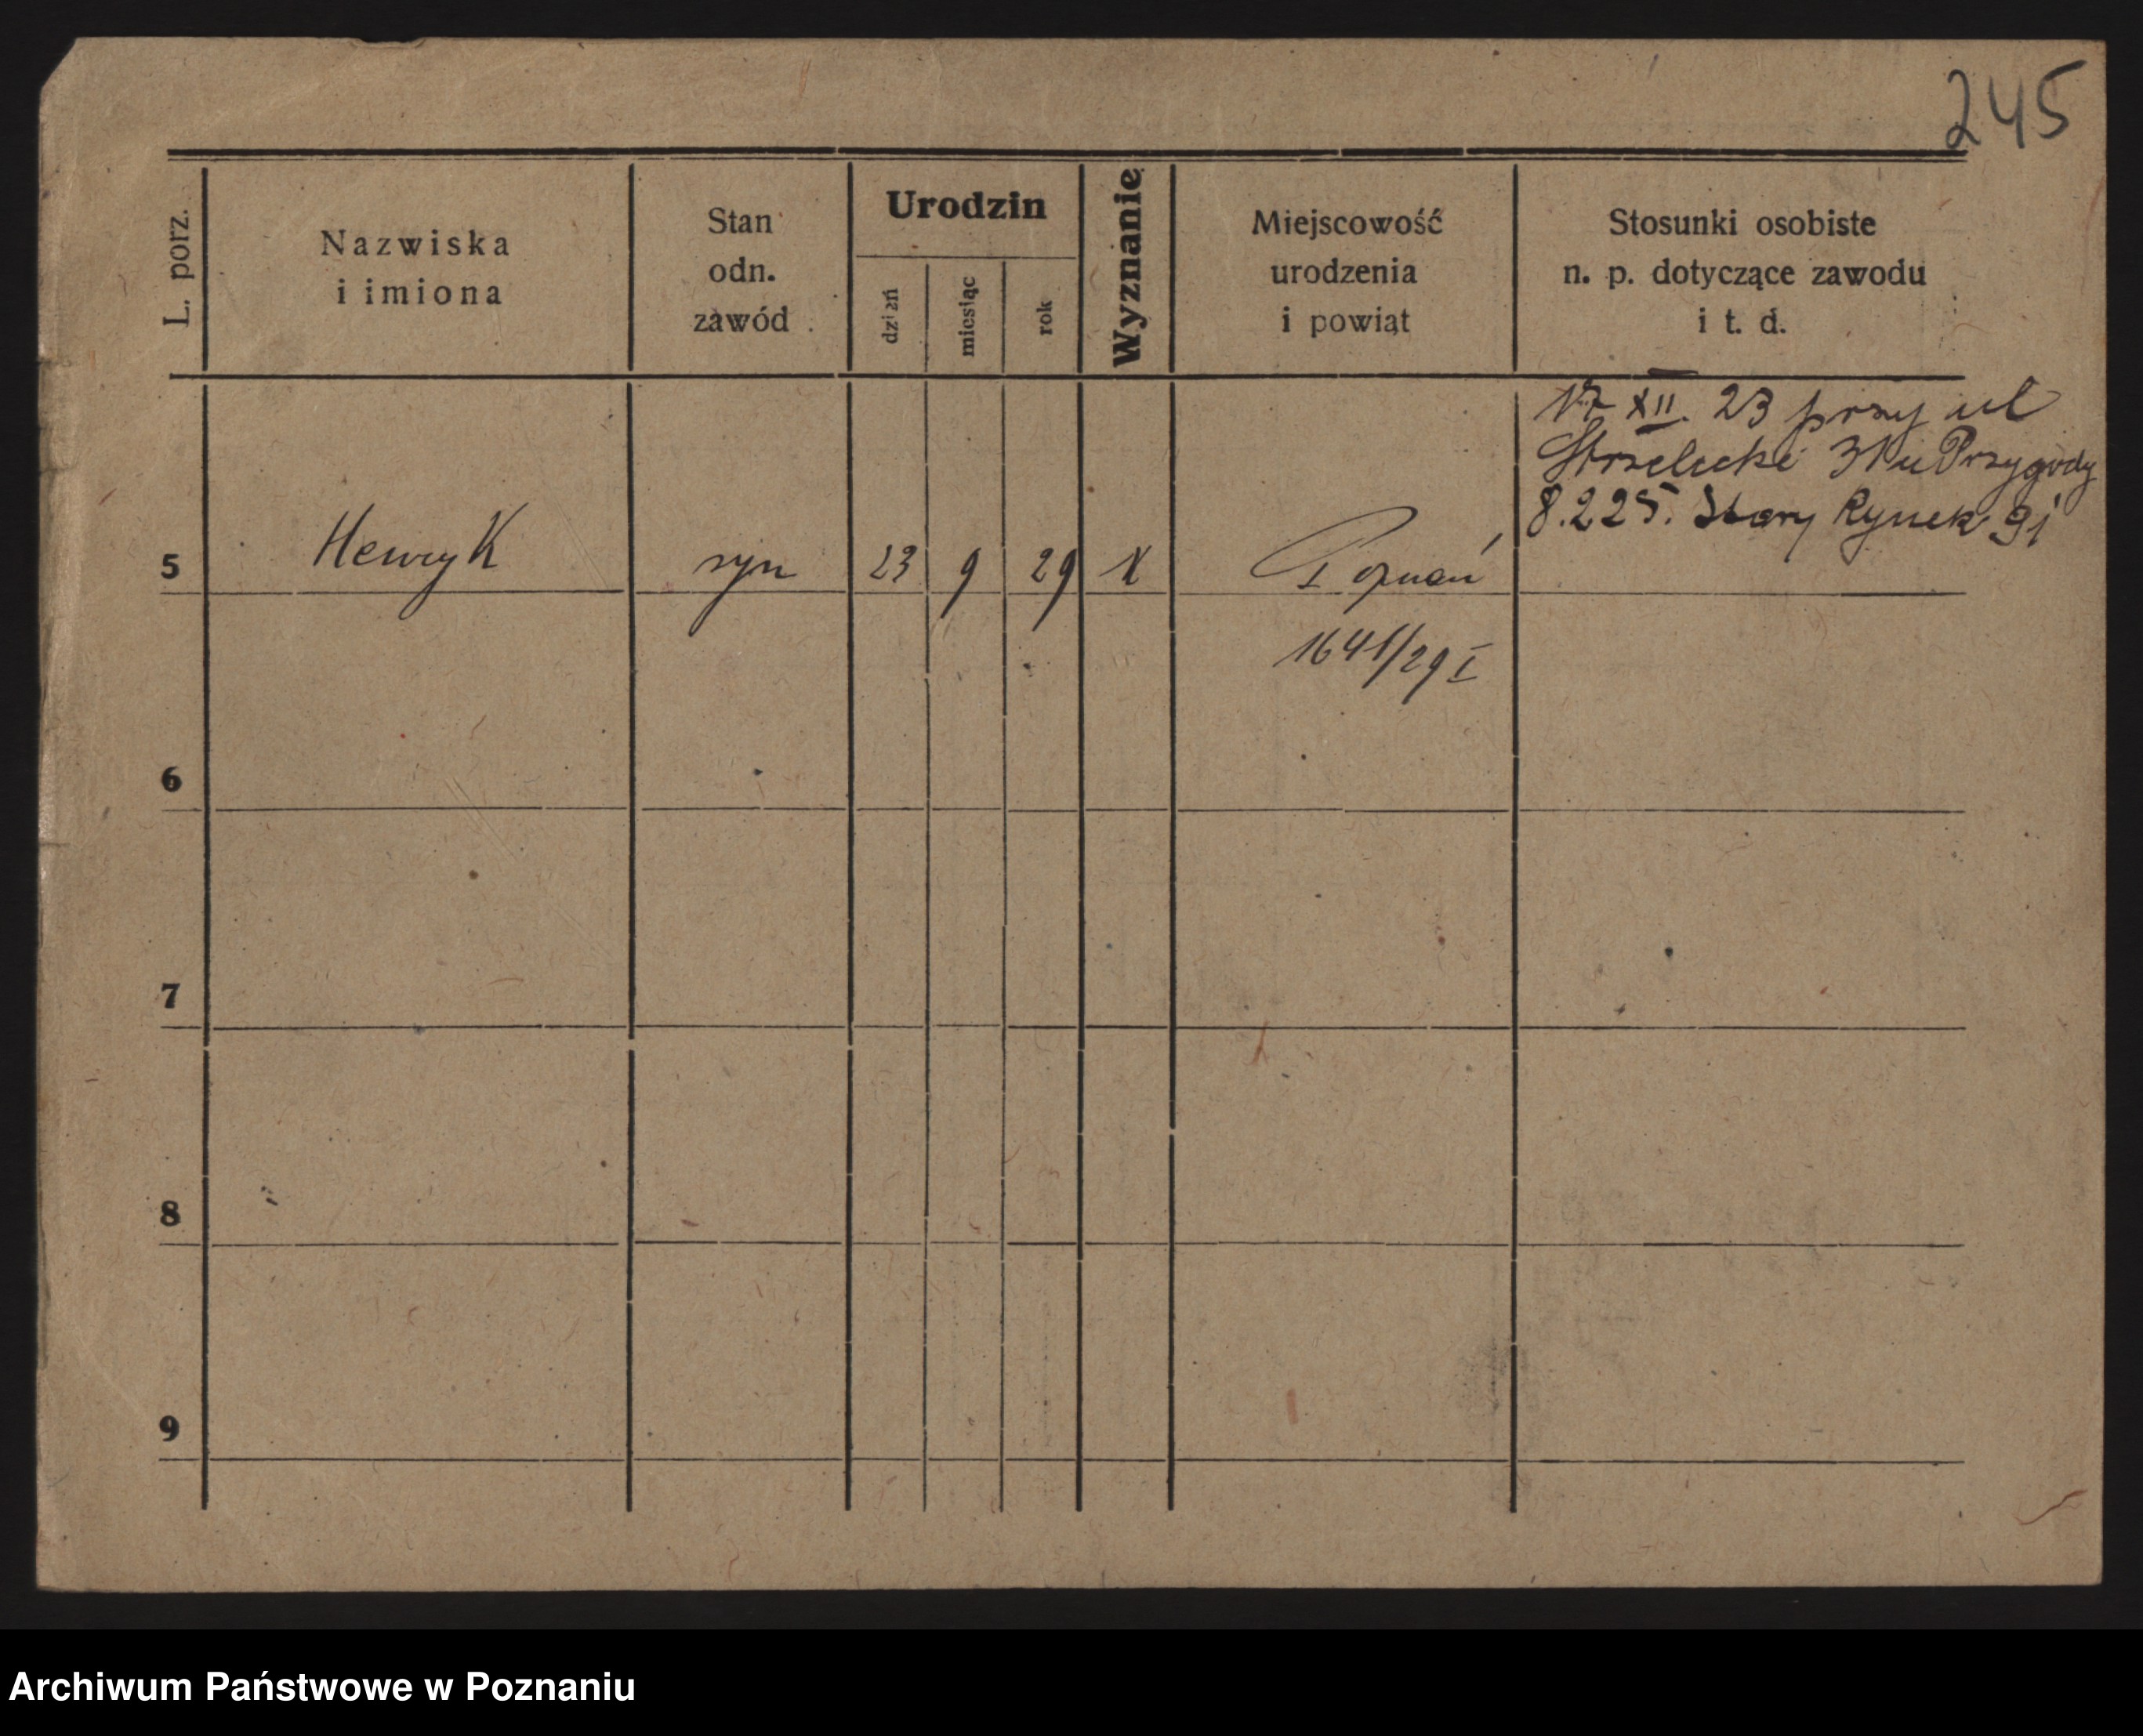 245
L. porz.
Nazwiska
i imiona
Stan
odn.
zawód
Urodzin
dzień
miesiąc
rok
Wyznanie
Miejscowość
urodzenia
i powiąt
Stosunki osobiste
n. p. dotyczące zawodu
i t. d.
17 XII. 23 przy ul
Strzelecke 31 u Przygody
8.2 25. Stary Rynek 91
5 Henryk syn 23 9 29 Poznań
1641/29 I
6
7
8
9
Archiwum Państwowe w Poznaniu